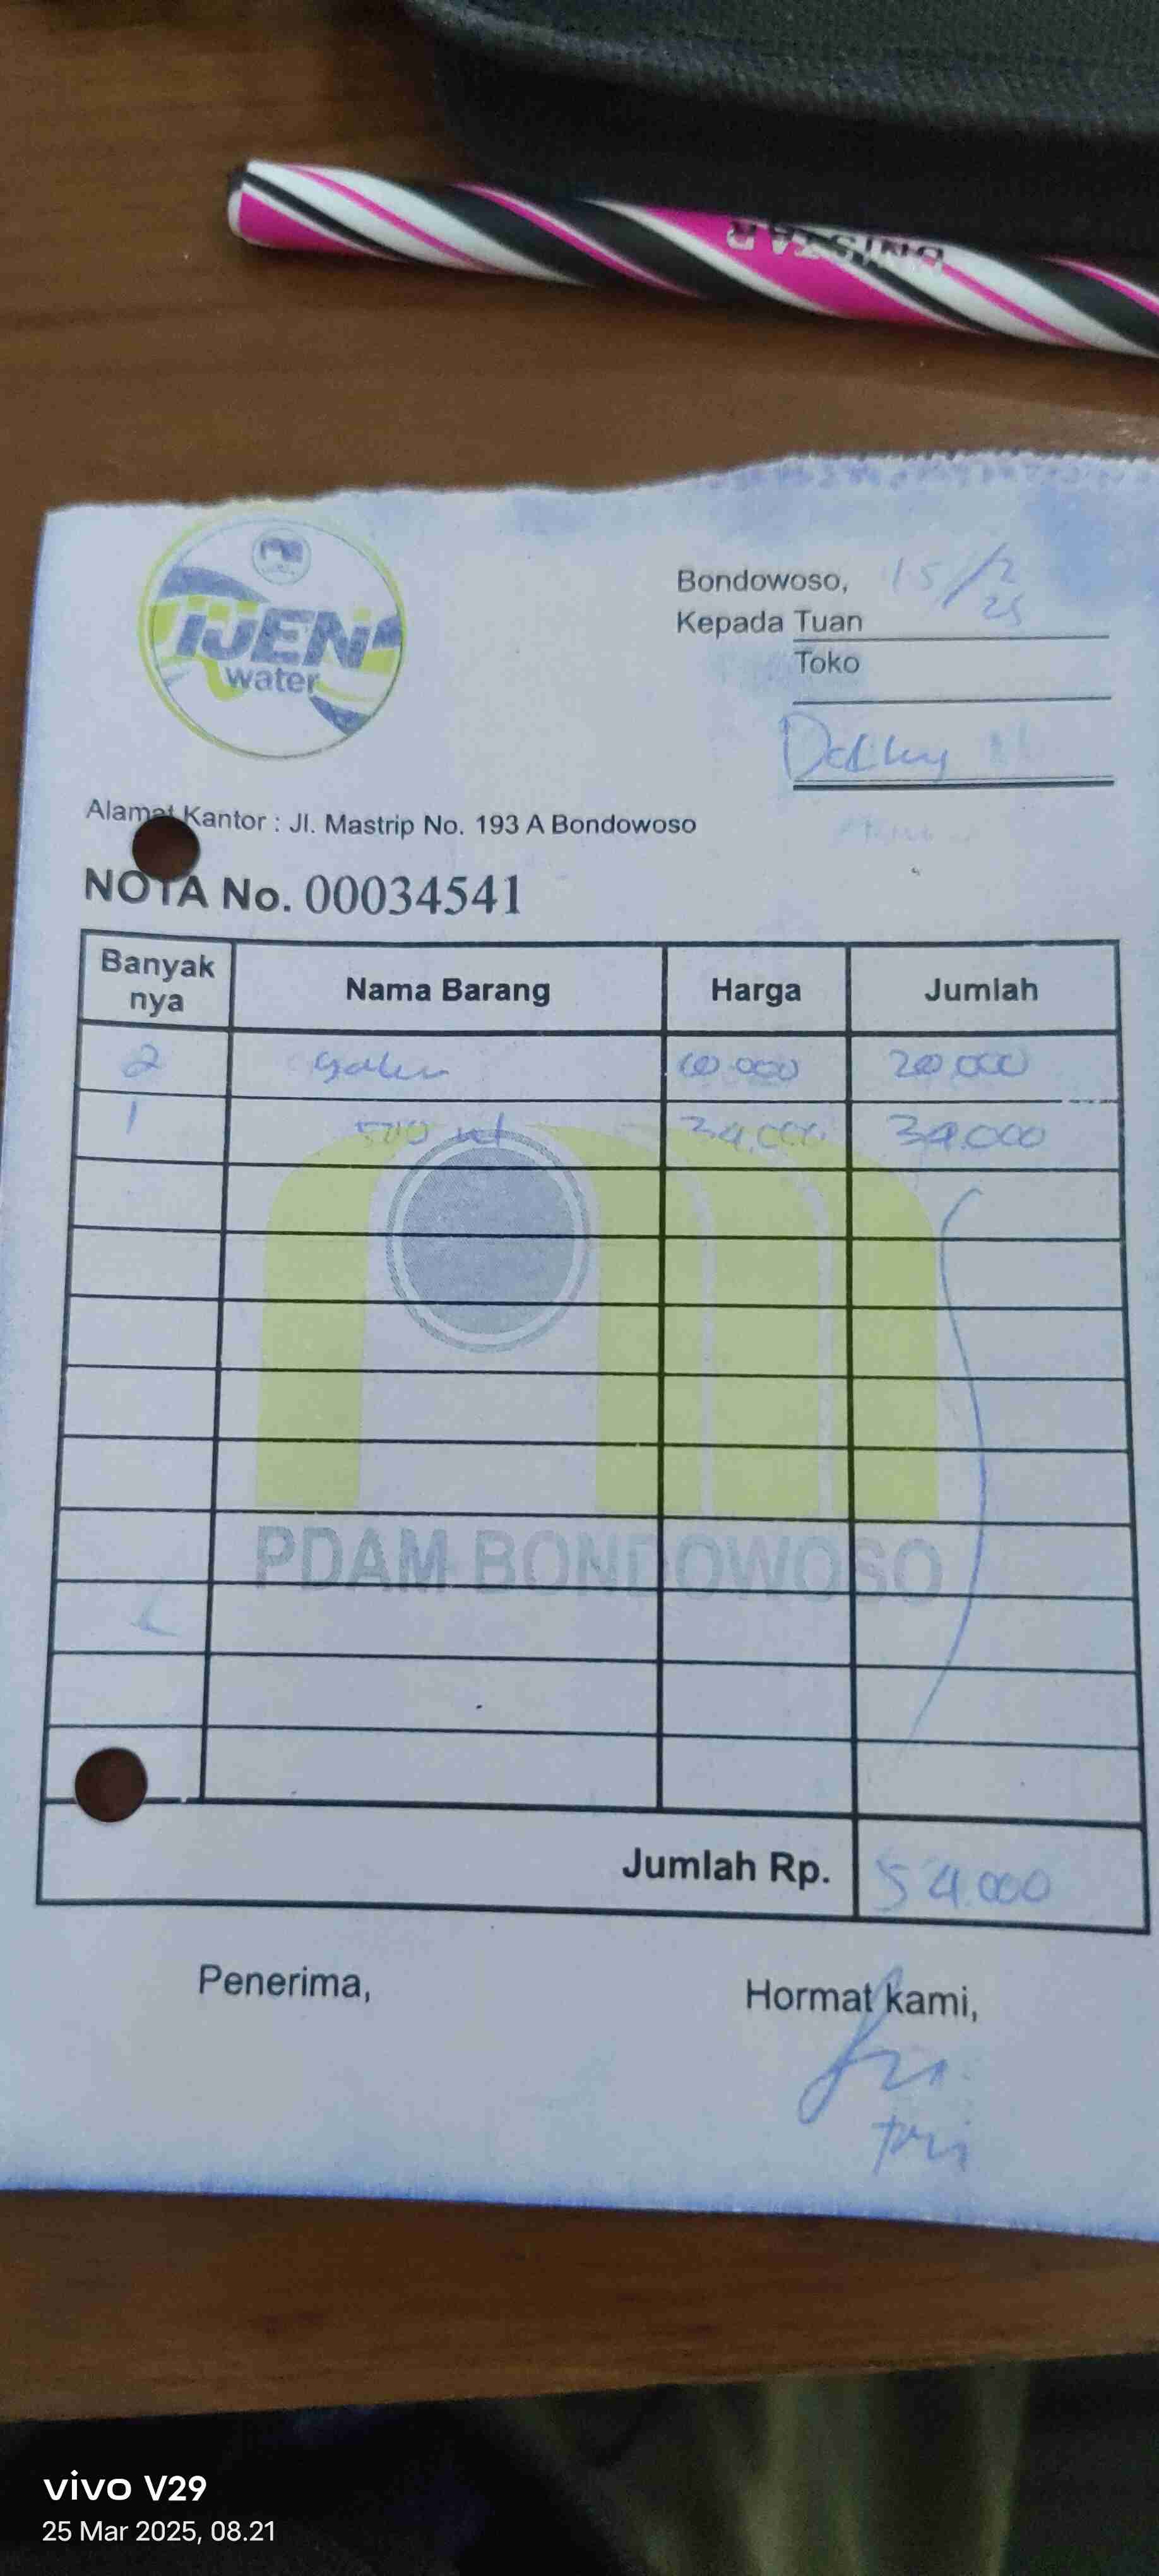 UNISTAR
IJEN
water
Bondowoso, 15/2 25
Kepada Tuan
Toko
Alamat Kantor : Jl. Mastrip No. 193 A Bondowoso
NOTA No. 00034541
Banyak nya Nama Barang Harga Jumlah
2 galon 10.000 20.000
1 500 ml 34.000 34.000
PDAM BONDOWOSO
Jumlah Rp. 54.000
Penerima, Hormat kami,
tri
vivo V29
25 Mar 2025, 08.21